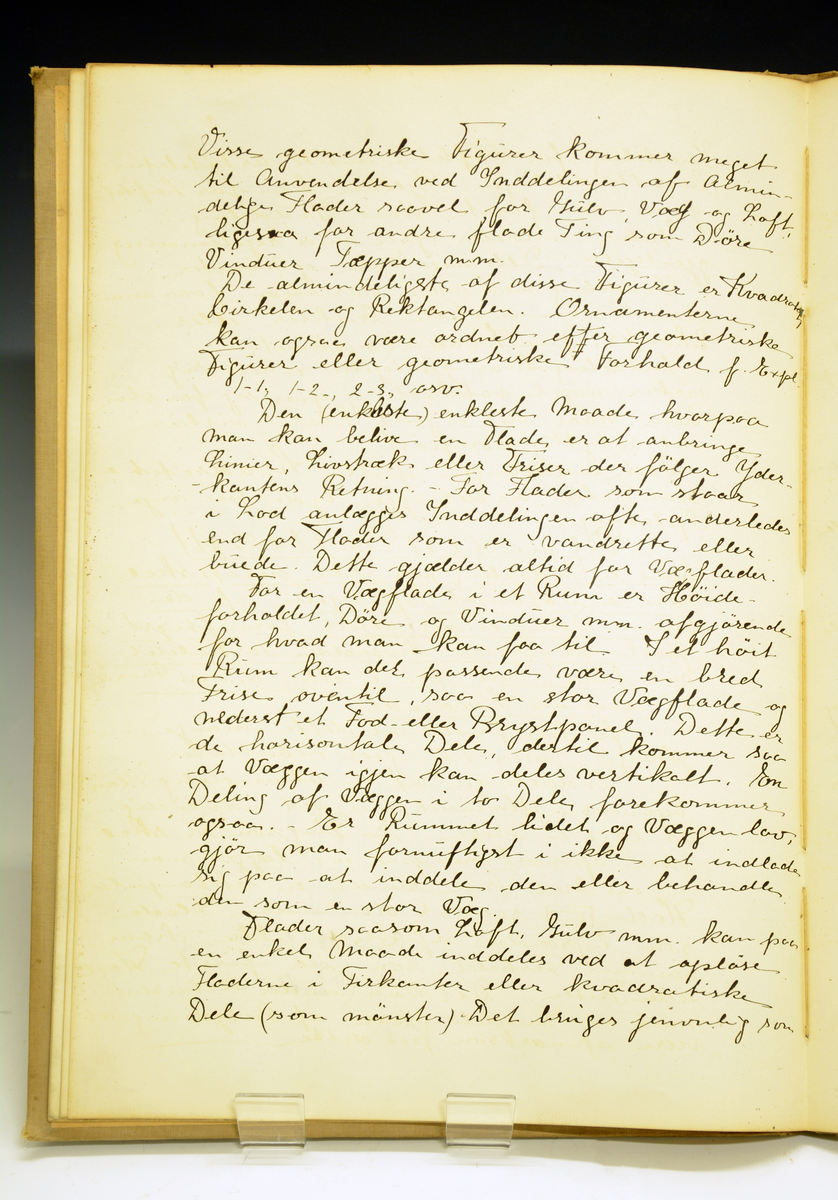 Visse geometriske Figurer kommer meget
til Anvendelse ved Inddelingen af Almin-
delige Flader saavel for Gulv, Væg og Loft,
ligesaa for andre flade Ting som Döre
Vinduer Tæpper m.m.
De almindeligste af disse Figurer er Kvadratet,
Cirkelen og Rektangelen. Ornamenterne
kan ogsaa være ordnet efter geometriske
Figurer eller geometriske Forhold f. Expl.
1-1, 1-2, 2-3, osv.
Den (enkleste) enkleste Maade hvorpaa
man kan belive en Flade er at anbringe
Linier, Livstræk eller Friser der fölger Yder-
-kantens Retning. - For Flader som staar
i Lod anlægges Inddelingen ofte anderledes
end for Flader som er vandrette eller
buede. Dette gjælder altid for Vægflader.
For en Vægflade i et Rum er Höide-
forholdet, Döre og Vinduer m.m. afgjörende
for hvad man kan faa til. I et höit
Rum kan det passende være en bred
Frise oventil, saa en stor Vægflade og
nederst et Fod- eller Brystpanel. Dette er
de horisontale Dele, dertil kommer saa
at Væggen igjen kan deles vertikalt. En
Deling af Væggen i to Dele forekommer
ogsaa. - Er Rummet lidet og Væggen lav,
gjör man fornuftigst i ikke at indlade
sig paa at inddele den eller behandle
den som en stor Væg.
Flader saasom Loft, Gulv m.m. kan paa
en enkel Maade inddeles ved at oplöse
Fladerne i Firkanter eller kvadratiske
Dele (som mönster). Det bruges jevnlig som